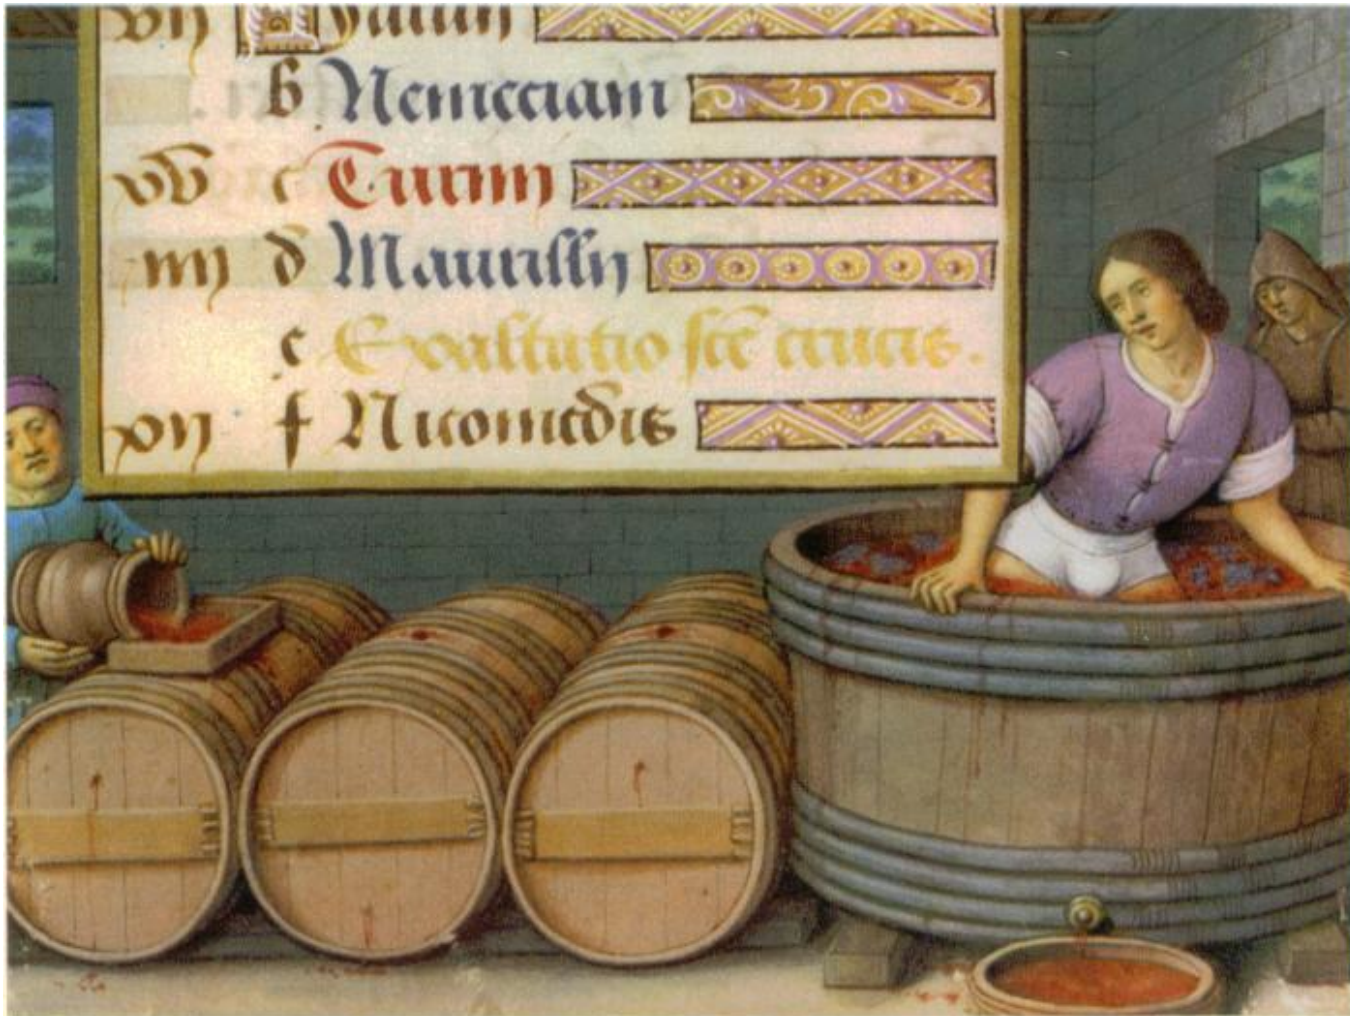 vii
b Nemeciani
xv c Turini
iiii d Maurilli
e Exaltatio sce crucis.
xii f Nicomedis